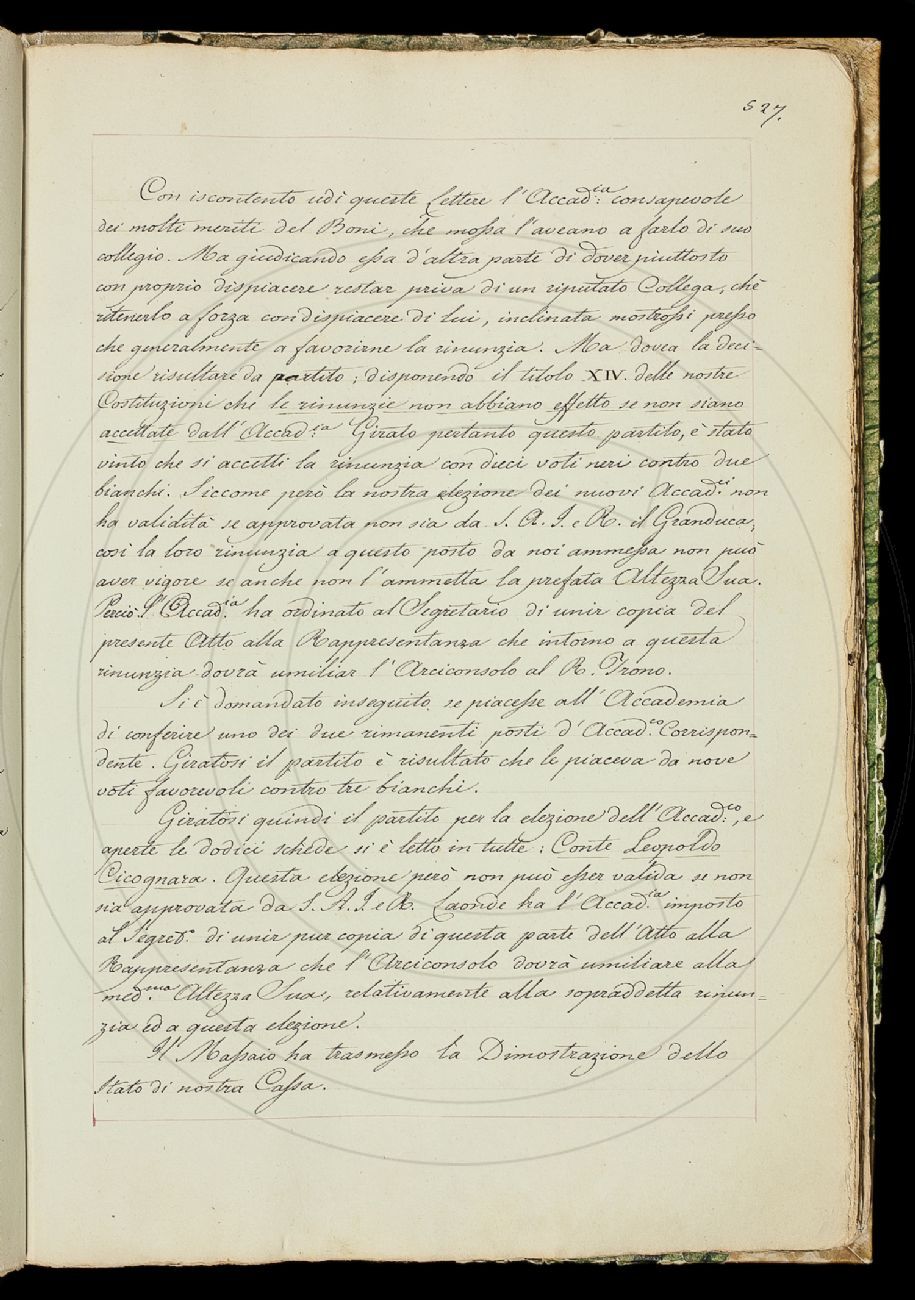 527.
Con iscontento udì queste Lettere l'Accad:ia consapevole
dei molti meriti del Boni, che mossa l'aveano a farlo di suo
collegio. Ma giudicando essa d'altra parte di dover piuttosto
con proprio dispiacere restar priva di un riputato Collega, chè
ritenerlo a forza con dispiacere di lui, inclinata mostrossi presso
che generalmente a favorirne la rinunzia. Ma dovea la deci-
sione risultare da partito; disponendo il titolo XIV. delle nostre
Costituzioni che le rinunzie non abbiano effetto se non siano
accettate dall'Accad:ia Girato pertanto questo partito, è stato
vinto che si accetti la rinunzia con dieci voti neri contro due
bianchi. Siccome però la nostra elezione dei nuovi Accad:ci non
ha validità se approvata non sia da S. A. I. e R. il Granduca,
così la loro rinunzia a questo posto da noi ammessa non può
aver vigore se anche non l'ammetta la prefata Altezza Sua.
Perciò l'Accad:ia ha ordinato al Segretario di unir copia del
presente Atto alla Rappresentanza che intorno a questa
rinunzia dovrà umiliar l'Arciconsolo al R. Trono.
Si è domandato inseguito se piacesse all'Accademia
di conferire uno dei due rimanenti posti d'Accad:co Corrispon=
dente. Giratosi il partito è risultato che le piaceva da nove
voti favorevoli contro tre bianchi.
Giratosi quindi il partito per la elezione dell'Accad:co, e
aperte le dodici schede si è letto in tutte: Conte Leopoldo
Cicognara. Questa elezione però non può esser valida se non
sia approvata da S. A. I. e R. Laonde ha l'Accad:ia imposto
al Segret.o di unir pur copia di questa parte dell'Atto alla
Rappresentanza che l'Arciconsolo dovrà umiliare alla
med:ma Altezza Sua, relativamente alla sopraddetta rinun=
zia ed a questa elezione.
Il Massaio ha trasmesso la Dimostrazione dello
Stato di nostra Cassa.